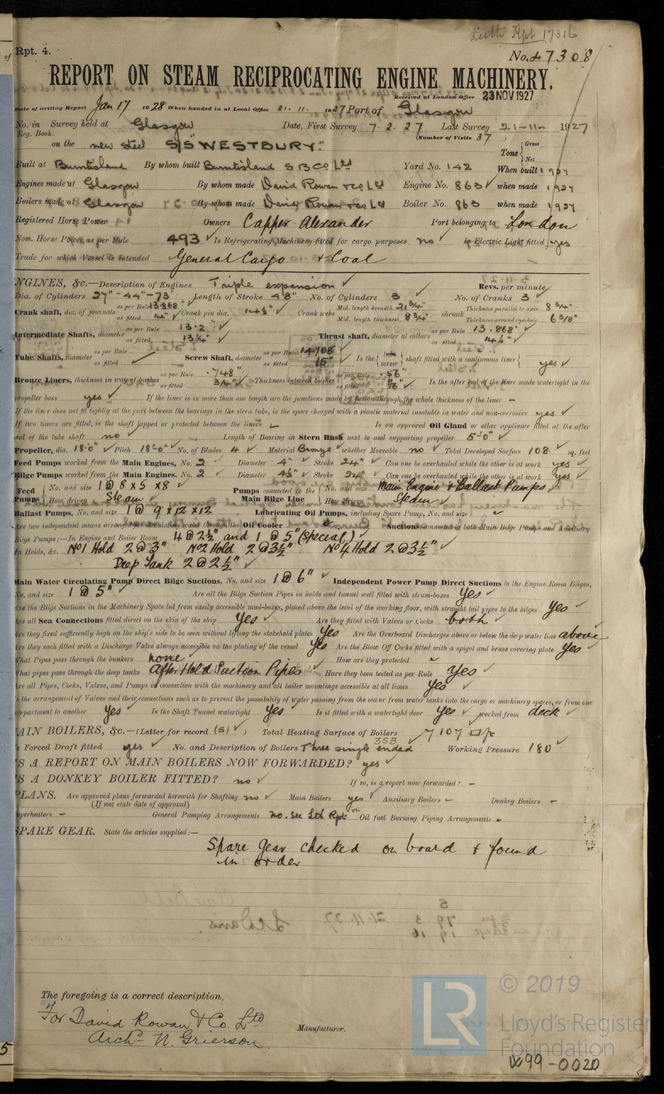 Leith Rpt 17316
Rpt. 4.
No. 47308
REPORT ON STEAM RECIPROCATING ENGINE MACHINERY.
Received at London Office 23 NOV 1927
Date of writing Report Jan 17 1928 When handed in at Local Office 21-11-1927 Port of Glasgow
No. in Survey held at Glasgow Date, First Survey 7.2.27 Last Survey 21-11- 1927
Reg. Book. (Number of Visits 37)
on the new steel S/S "WESTBURY" Tons Gross Net
Built at Burntisland By whom built Burntisland S B Co Ltd Yard No. 142 When built 1927
Engines made at Glasgow By whom made David Rowan & Co Ltd Engine No. 863 when made 1927
Boilers made at Glasgow By whom made David Rowan & Co Ltd Boiler No. 863 when made 1927
Registered Horse Power Owners Capper Alexander Port belonging to London
Nom. Horse Power as per Rule 493 Is Refrigerating Machinery fitted for cargo purposes no Is Electric Light fitted yes
Trade for which Vessel is intended General Cargo & Coal
ENGINES, &c.—Description of Engines Triple expansion Revs. per minute
Dia. of Cylinders 27"-44"-73" Length of Stroke 48" No. of Cylinders 3 No. of Cranks 3
Crank shaft, dia. of journals as per Rule 13.868" as fitted Crank pin dia. Crank webs Mid. length breadth 21¾" Mid. length thickness 8¾" shrunk Thickness parallel to axis 8¾" Thickness around eye-hole 6⅜"
Intermediate Shafts, diameter as per Rule 13.2" as fitted 13¼" Thrust shaft, diameter at collars as per Rule 13.868" as fitted
Tube Shafts, diameter as per Rule as fitted Screw Shaft, diameter as per Rule 14.708 as fitted 15" Is the tube screw shaft fitted with a continuous liner yes
Bronze Liners, thickness in way of bushes as per Rule .748" as fitted ¾" Thickness between bushes as per Rule .56" as fitted Is the after end of the liner made watertight in the
propeller boss yes If the liner is in more than one length are the junctions made by fusion through the whole thickness of the liner –
If the liner does not fit tightly at the part between the bearings in the stern tube, is the space charged with a plastic material insoluble in water and non-corrosive yes
If two liners are fitted, is the shaft lapped or protected between the liners – Is an approved Oil Gland or other appliance fitted at the after
end of the tube shaft no Length of Bearing in Stern Bush next to and supporting propeller 5'-0"
Propeller, dia. 18'-0" Pitch 18'-0" No. of Blades 4 Material Bronze whether Moveable no Total Developed Surface 108 sq. feet
Feed Pumps worked from the Main Engines, No. 2 Diameter 4" Stroke 24" Can one be overhauled while the other is at work yes
Bilge Pumps worked from the Main Engines, No. 2 Diameter 4½" Stroke 24" Can one be overhauled while the other is at work yes
Feed Pumps No. and size 1 @ 8 x 5 x 8 How driven Steam Pumps connected to the Main Bilge Line No. and size Main Engine & Ballast Pumps How driven Steam
Ballast Pumps, No. and size 1 @ 9 x 12 x 12 Lubricating Oil Pumps, including Spare Pump, No. and size
Are two independent means arranged for circulating water through the Oil Cooler Suctions connected to both Main Bilge Pumps and Auxiliary
Bilge Pumps;—In Engine and Boiler Room 4 @ 2½" and 1 @ 5" (Special)
In Holds, &c. No 1 Hold 2 @ 3" No 2 Hold 2 @ 3½" No 4 Hold 2 @ 3½"
Deep Tank 2 @ 2½"
Main Water Circulating Pump Direct Bilge Suctions, No. and size 1 @ 6" Independent Power Pump Direct Suctions to the Engine Room Bilges,
No. and size 1 @ 5" Are all the Bilge Suction Pipes in holds and tunnel well fitted with strum-boxes Yes
Are the Bilge Suctions in the Machinery Space led from easily accessible mud-boxes, placed above the level of the working floor, with straight tail pipes to the bilges Yes
Are all Sea Connections fitted direct on the skin of the ship Yes Are they fitted with Valves or Cocks both
Are they fixed sufficiently high on the ship's side to be seen without lifting the stokehold plates Yes Are the Overboard Discharges above or below the deep water line above
Are they each fitted with a Discharge Valve always accessible on the plating of the vessel Yes Are the Blow Off Cocks fitted with a spigot and brass covering plate Yes
What Pipes pass through the bunkers none How are they protected
What pipes pass through the deep tanks After Hold Suction Pipes Have they been tested as per Rule Yes
Are all Pipes, Cocks, Valves, and Pumps in connection with the machinery and all boiler mountings accessible at all times Yes
Is the arrangement of Valves and their connections such as to prevent the possibility of water passing from the sea or from water tanks into the cargo or machinery spaces, or from one
compartment to another Yes Is the Shaft Tunnel watertight Yes Is it fitted with a watertight door Yes worked from deck
MAIN BOILERS, &c.—(Letter for record (S)) Total Heating Surface of Boilers 7107 sq ft
Is Forced Draft fitted yes No. and Description of Boilers Three single ended 3SB Working Pressure 180
IS A REPORT ON MAIN BOILERS NOW FORWARDED? yes
IS A DONKEY BOILER FITTED? no If so, is a report now forwarded? –
PLANS. Are approved plans forwarded herewith for Shafting no Main Boilers yes Auxiliary Boilers – Donkey Boilers –
(If not state date of approval)
Superheaters – General Pumping Arrangements no. see Lth Rpt Oil fuel Burning Piping Arrangements –
SPARE GEAR. State the articles supplied:—
Spare Gear checked on board & found
in order
The foregoing is a correct description,
For David Rowan & Co. Ltd
Archd N. Grierson
Manufacturer.
© 2019
LR
Lloyd's Register
Foundation
W99-0020